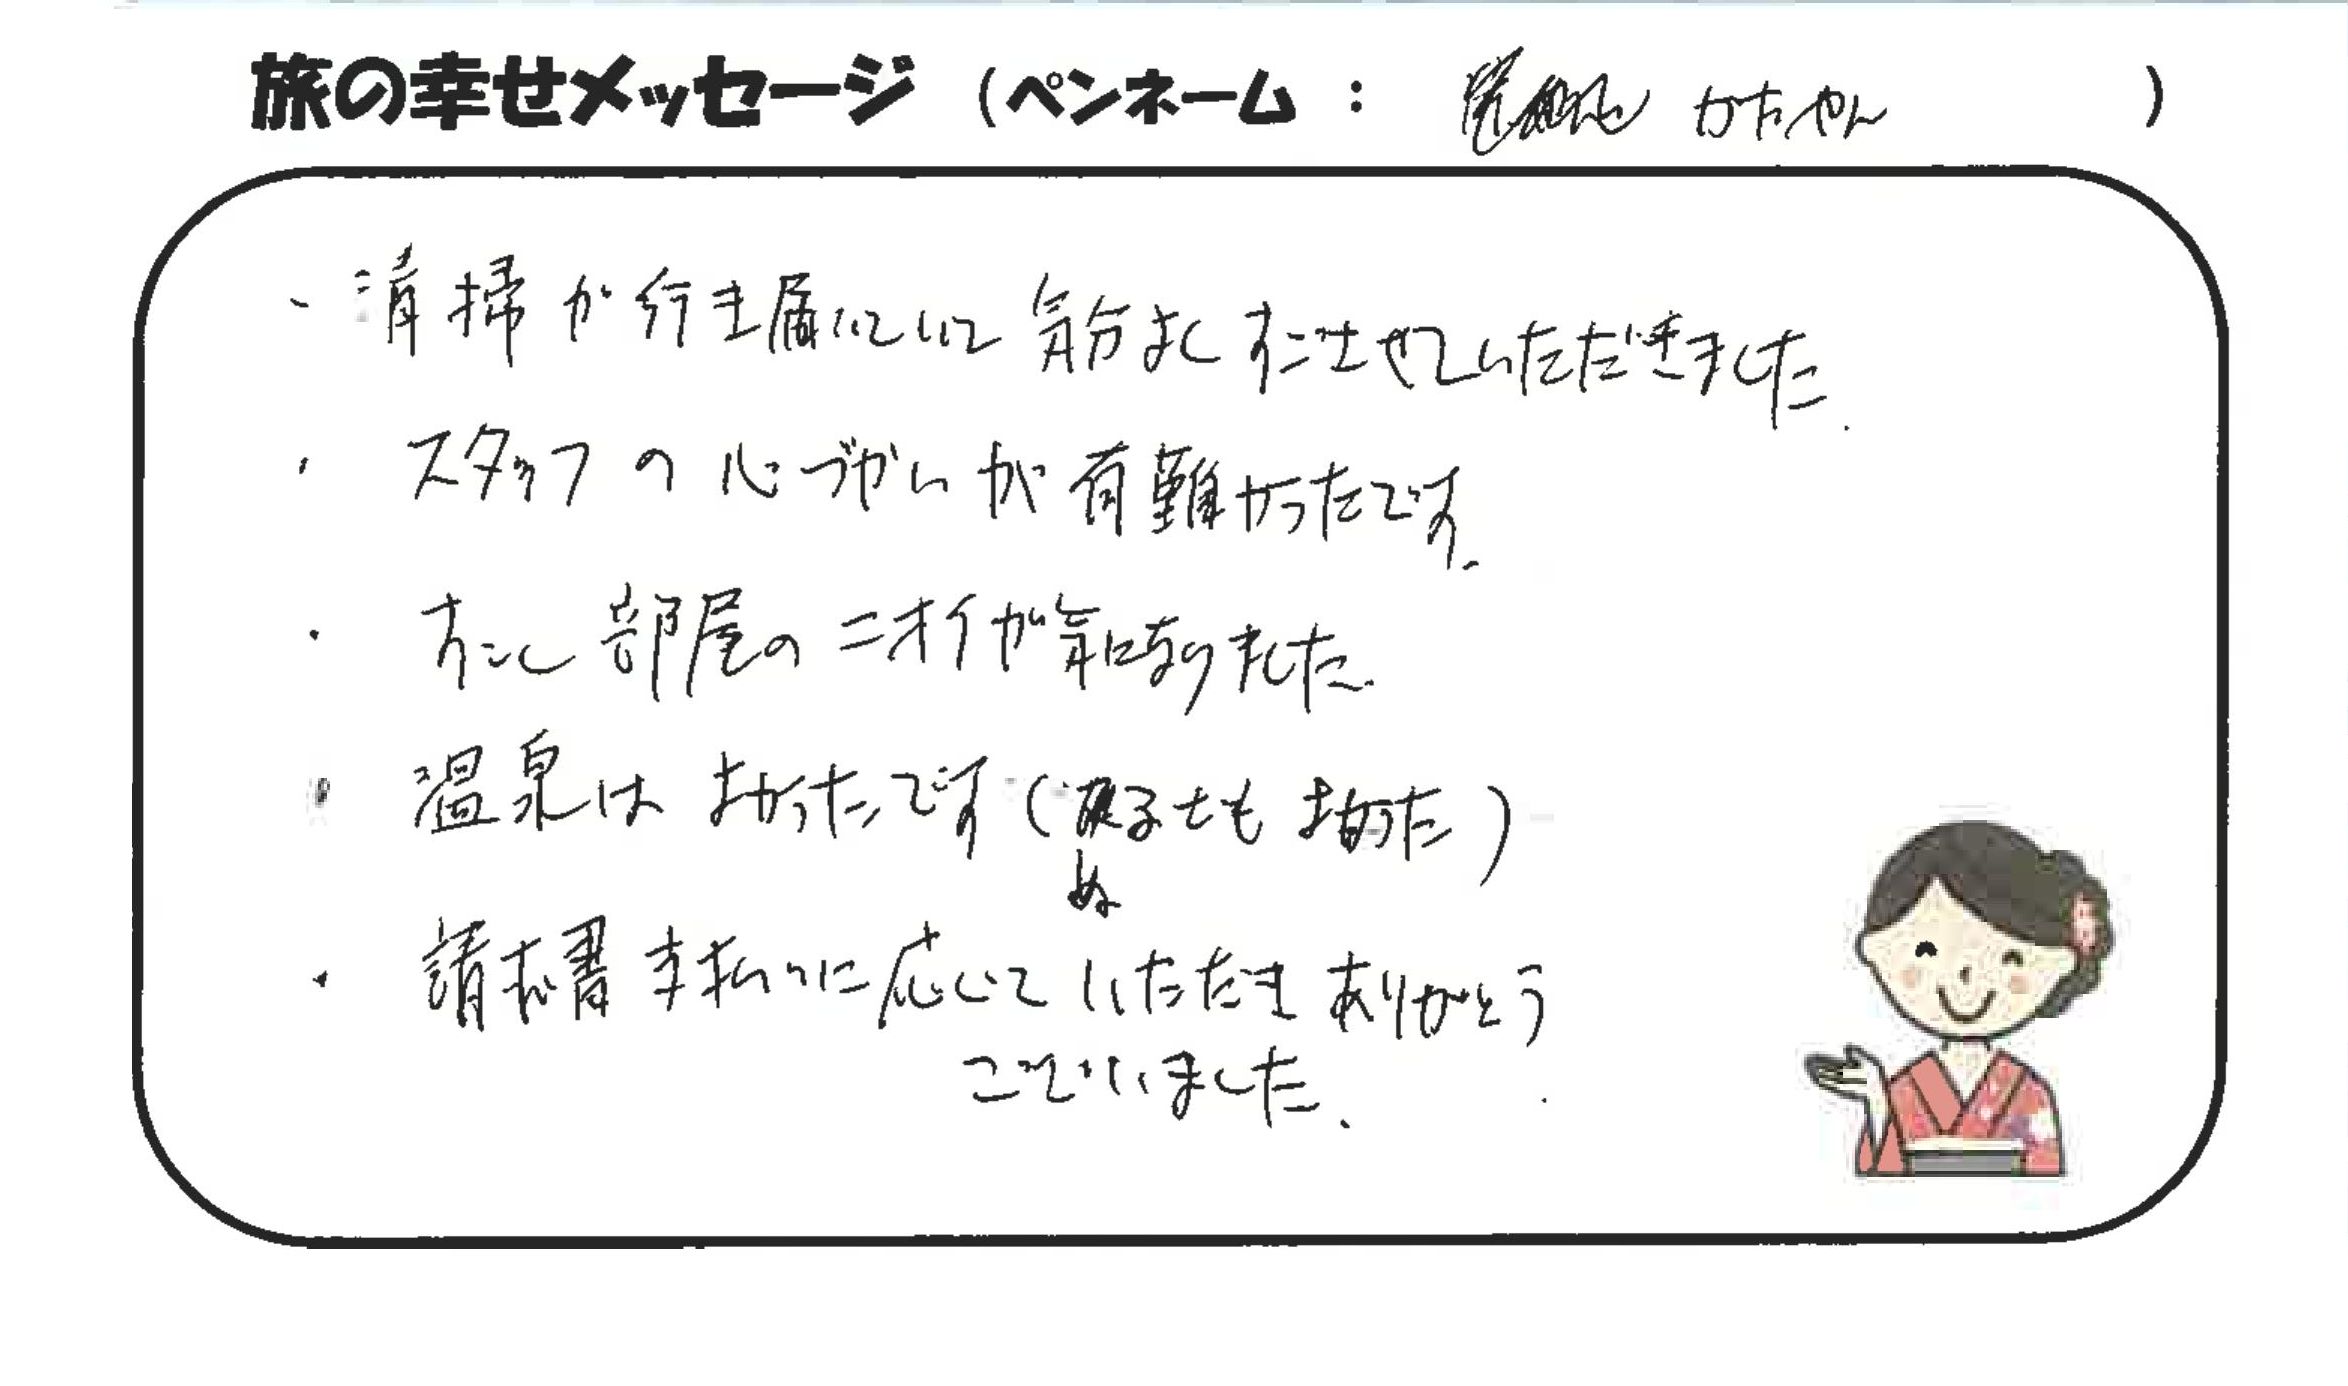 旅の幸せメッセージ (ペンネーム : かたやん )
・清掃が行き届いていて気分よくすごせせていただきました.
・スタッフの心づかいが有難かったです.
・すこし部屋のニオイが気になりました.
・温泉はよかったです(度もよかった)
ぬ
・請求書支払いに応じていただきありがとう
ございました.